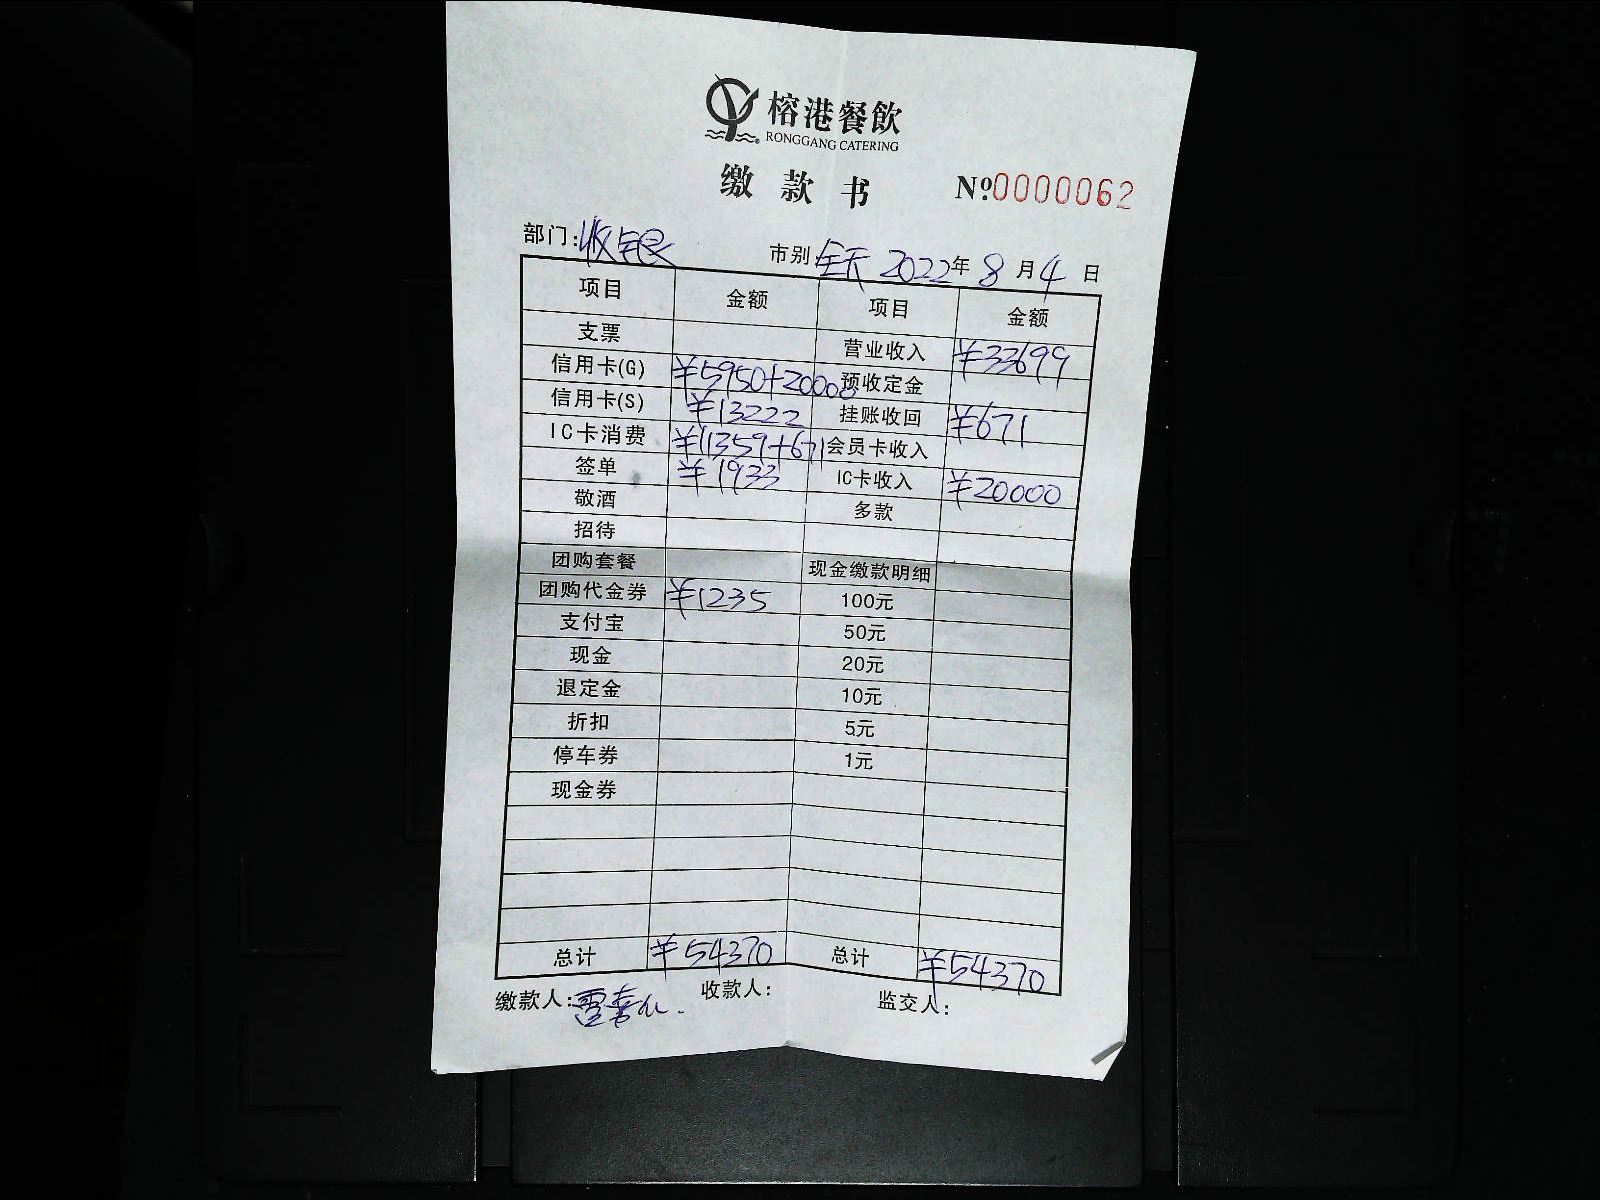 榕港餐飲
RONGGANG CATERING
缴款书 №0000062
部门：收银 市别：全天 2022年8月4日
项目 金额 项目 金额
支票 营业收入 ¥33699
信用卡(G) ¥5950+20000 预收定金
信用卡(S) ¥13222 挂账收回 ¥671
IC卡消费 ¥11359+671 会员卡收入
签单 ¥1933 IC卡收入 ¥20000
敬酒 多款
招待
团购套餐 现金缴款明细
团购代金券 ¥1235 100元
支付宝 50元
现金 20元
退定金 10元
折扣 5元
停车券 1元
现金券
总计 ¥54370 总计 ¥54370
缴款人： 收款人： 监交人：